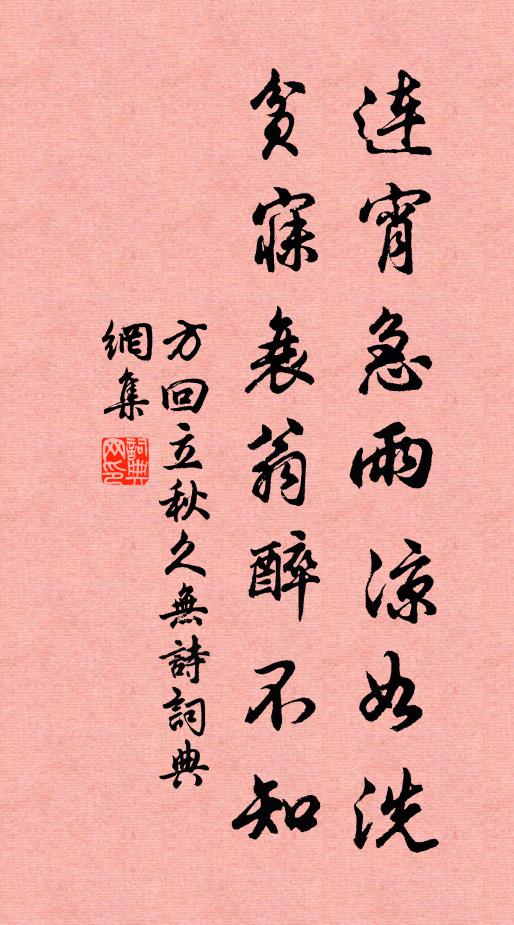 連宵急雨凉如洗
貧寐衰翁醉不知
方回立秋久無詩詞典
網集
詞典
网印